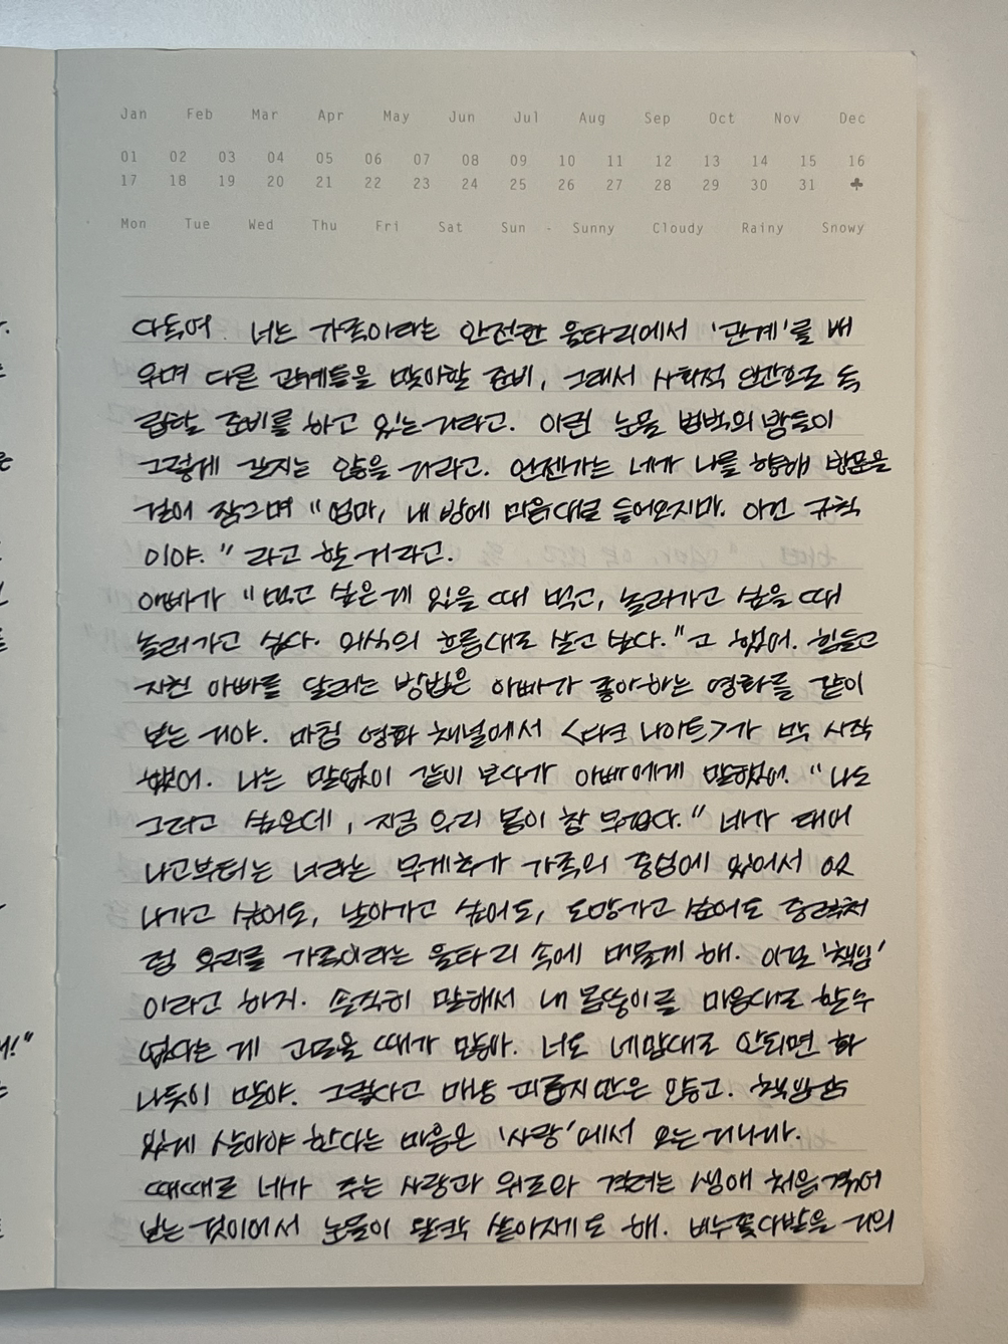 Jan Feb Mar Apr May Jun Jul Aug Sep Oct Nov Dec
01 02 03 04 05 06 07 08 09 10 11 12 13 14 15 16
17 18 19 20 21 22 23 24 25 26 27 28 29 30 31
Mon Tue Wed Thu Fri Sat Sun - Sunny Cloudy Rainy Snowy
다독여. 너는 가족이라는 안전한 울타리에서 '관계'를 배
우며 다른 관계들을 맞이할 준비, 그래서 사회적 인간으로 독
립할 준비를 하고 있는거라고. 이런 눈물 범벅의 밤들이
그렇게 길지는 않을 거라고. 언젠가는 네가 나를 향해 방문을
걸어 잠그며 "엄마, 내 방에 마음대로 들어오지마. 이건 규칙
이야." 라고 할 거라고.
아빠가 "먹고 싶은 게 있을 때 먹고, 놀러가고 싶을 때
놀러가고 싶다. 의식의 흐름대로 살고 싶다."고 했어. 힘들고
지친 아빠를 달래는 방법은 아빠가 좋아하는 영화를 같이
보는 거야. 마침 영화 채널에서 <다크 나이트>가 막 시작
했어. 나는 말없이 같이 보다가 아빠에게 말했어. "나도
그러고 싶은데, 지금 우리 몸이 참 무겁다." 네가 태어
나고부터는 너라는 무게추가 가족의 중심에 있어서 엇
나가고 싶어도, 날아가고 싶어도, 도망가고 싶어도 중력처
럼 우리를 가족이라는 울타리 속에 머물게 해. 이걸 '책임'
이라고 하지. 솔직히 말해서 내 몸뚱이를 마음대로 할 수
없다는 게 고달플 때가 많아. 너도 네 맘대로 안되면 화
나듯이 말야. 그렇다고 마냥 괴롭지만은 않고. 책임감
있게 살아야 한다는 마음은 '사랑'에서 오는 거니까.
때때로 네가 주는 사랑과 위로와 격려는 생애 처음 겪어
보는 것이어서 눈물이 왈칵 쏟아지게도 해. 비누꽃다발을 거의